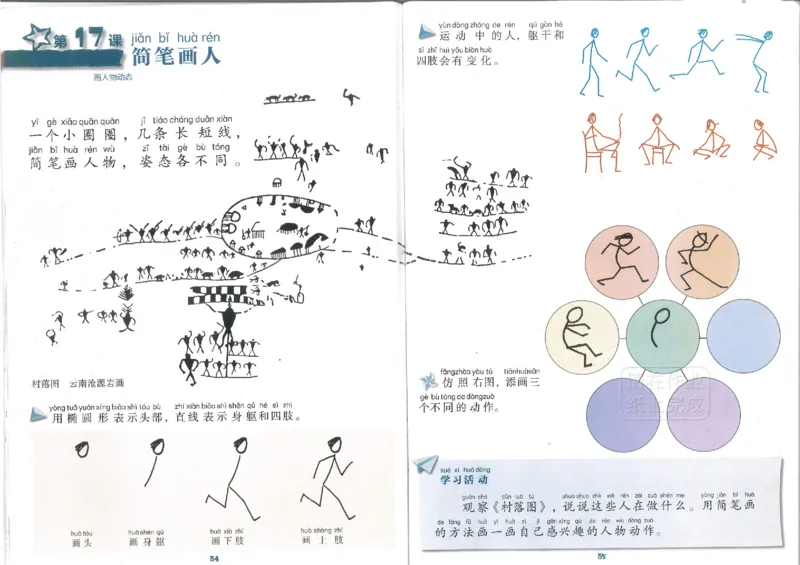 第17课
jiǎn bǐ huà rén
简笔画人
画人物动态
yī gè xiǎo quān quān jǐ tiáo cháng duǎn xiàn
一个小圈圈，几条长短线，
jiǎn bǐ huà rén wù zī tài gè bù tóng
简笔画人物，姿态各不同。
村落图 云南沧源岩画
yòng tuǒ yuán xíng biǎo shì tóu bù zhí xiàn biǎo shì shēn qū hé sì zhī
用椭圆形表示头部，直线表示身躯和四肢。
huà tóu
画头
huà shēn qū
画身躯
huà xià zhī
画下肢
huà shàng zhī
画上肢
34
yùn dòng zhōng de rén qū gàn hé
运动中的人，躯干和
sì zhī huì yǒu biàn huà
四肢会有变化。
fǎng zhào yòu tú tiān huà sān
仿照右图，添画三
gè bù tóng de dòng zuò
个不同的动作。
请在作业
纸上完成
xué xí huó dòng
学习活动
guān chá cūn luò tú shuō shuo zhè xiē rén zài zuò shén me yòng jiǎn bǐ huà
观察《村落图》，说说这些人在做什么。用简笔画
de fāng fǎ huà yí huà zì jǐ gǎn xìng qù de rén wù dòng zuò
的方法画一画自己感兴趣的人物动作。
35